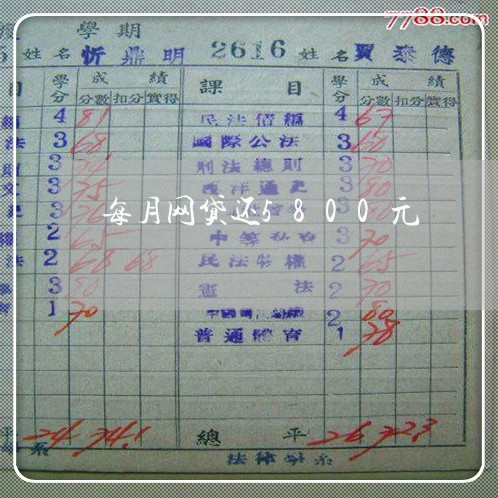 7788.com
學期
姓名 忻鼎明 2616 姓名 賈泰德
目 學分 成績 課目 學分 成績
分數 扣分 實得 分數 扣分 實得
4 81 民法債編 4 67
法 3 68 國際公法 3 60
3 刑法總則 3 70
3 75 西洋通史 3 80
3 3
每月网贷还5800元
2 65 3 70
法 2 68 68 民法物權 2 65
3 80 憲法 2 70
1 70 2 80
普通體育 1 78
平 24 74.1 總平 26 72.3
系 法律學系